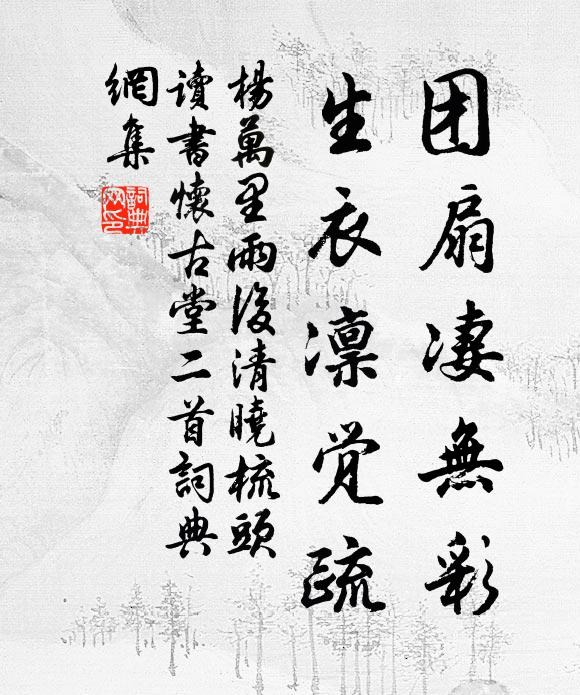 团扇凄無彩
生衣凛覚疏
楊萬里雨後清曉梳頭
讀書懷古堂二首詞典
網集
詞典网印